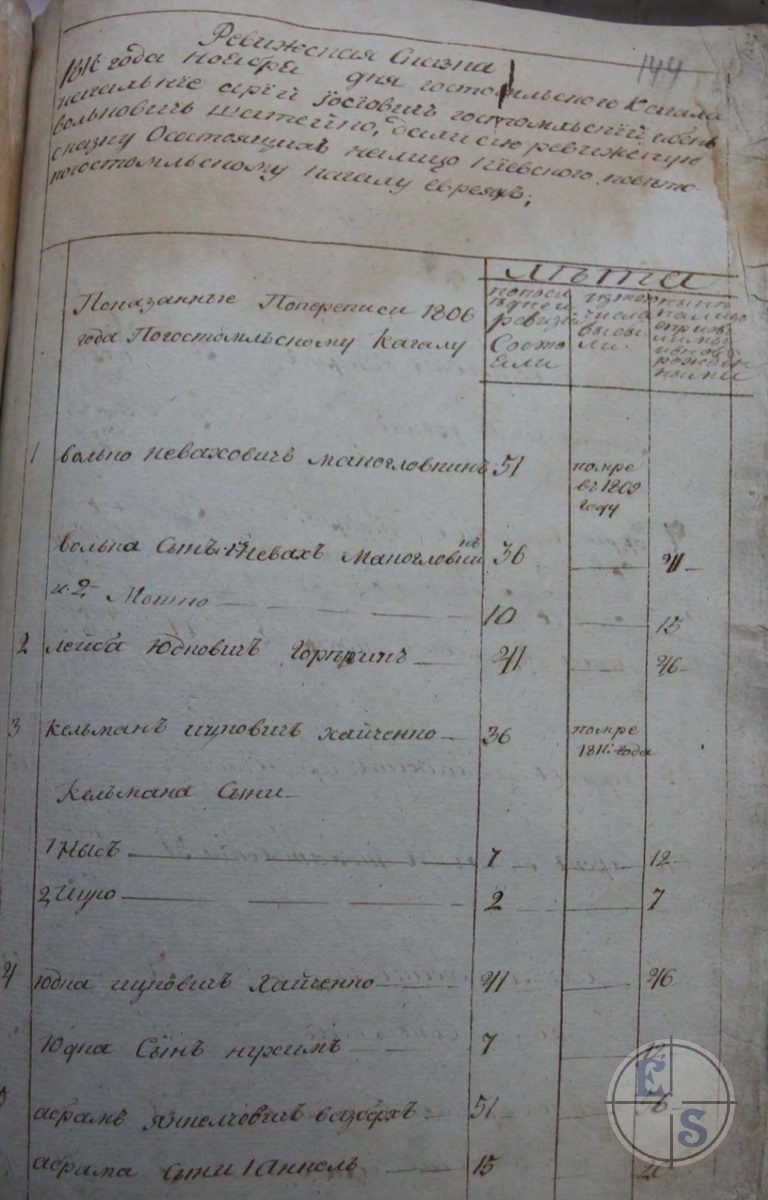 144
Ревижсная Сказка
1811 года ноября дня гостомльского Кагала
вольковичъ дали сию ревижскую
сказку Осостоящихъ налицо Киевского повѣта
погостомльскому кагалу евреяхъ;
Показанные Попереписи 1806
года Погостомльскому Кагалу
Лѣта
попосл
ѣдней
ревизiи
Состо
яли
изтого
числа
выбы
ли
ныне
налицо
1 волько невахович маногловкинъ 51 помре
въ 1809
году
волька Сынъ 1й Невахъ Маногловкинъ 36 — 41
и 2 Мошко — 10 — 15
2 лейба Юдковичъ — 41 — 46
3 Кельманъ ицковичъ хайченко — 36 помре
1811: года
Кельмана Сыни
1 Нысъ — 7 — 12
2, Ицко — 2 — 7
4 Юдка ицковичъ Хайченко — 41 — 46
Юдка Сынъ нухимъ — 7 — 12
5 абрамъ Янкелиовичъ — 51 — 56
абрама Сыни 1 Анкель — 15 — 20
E S